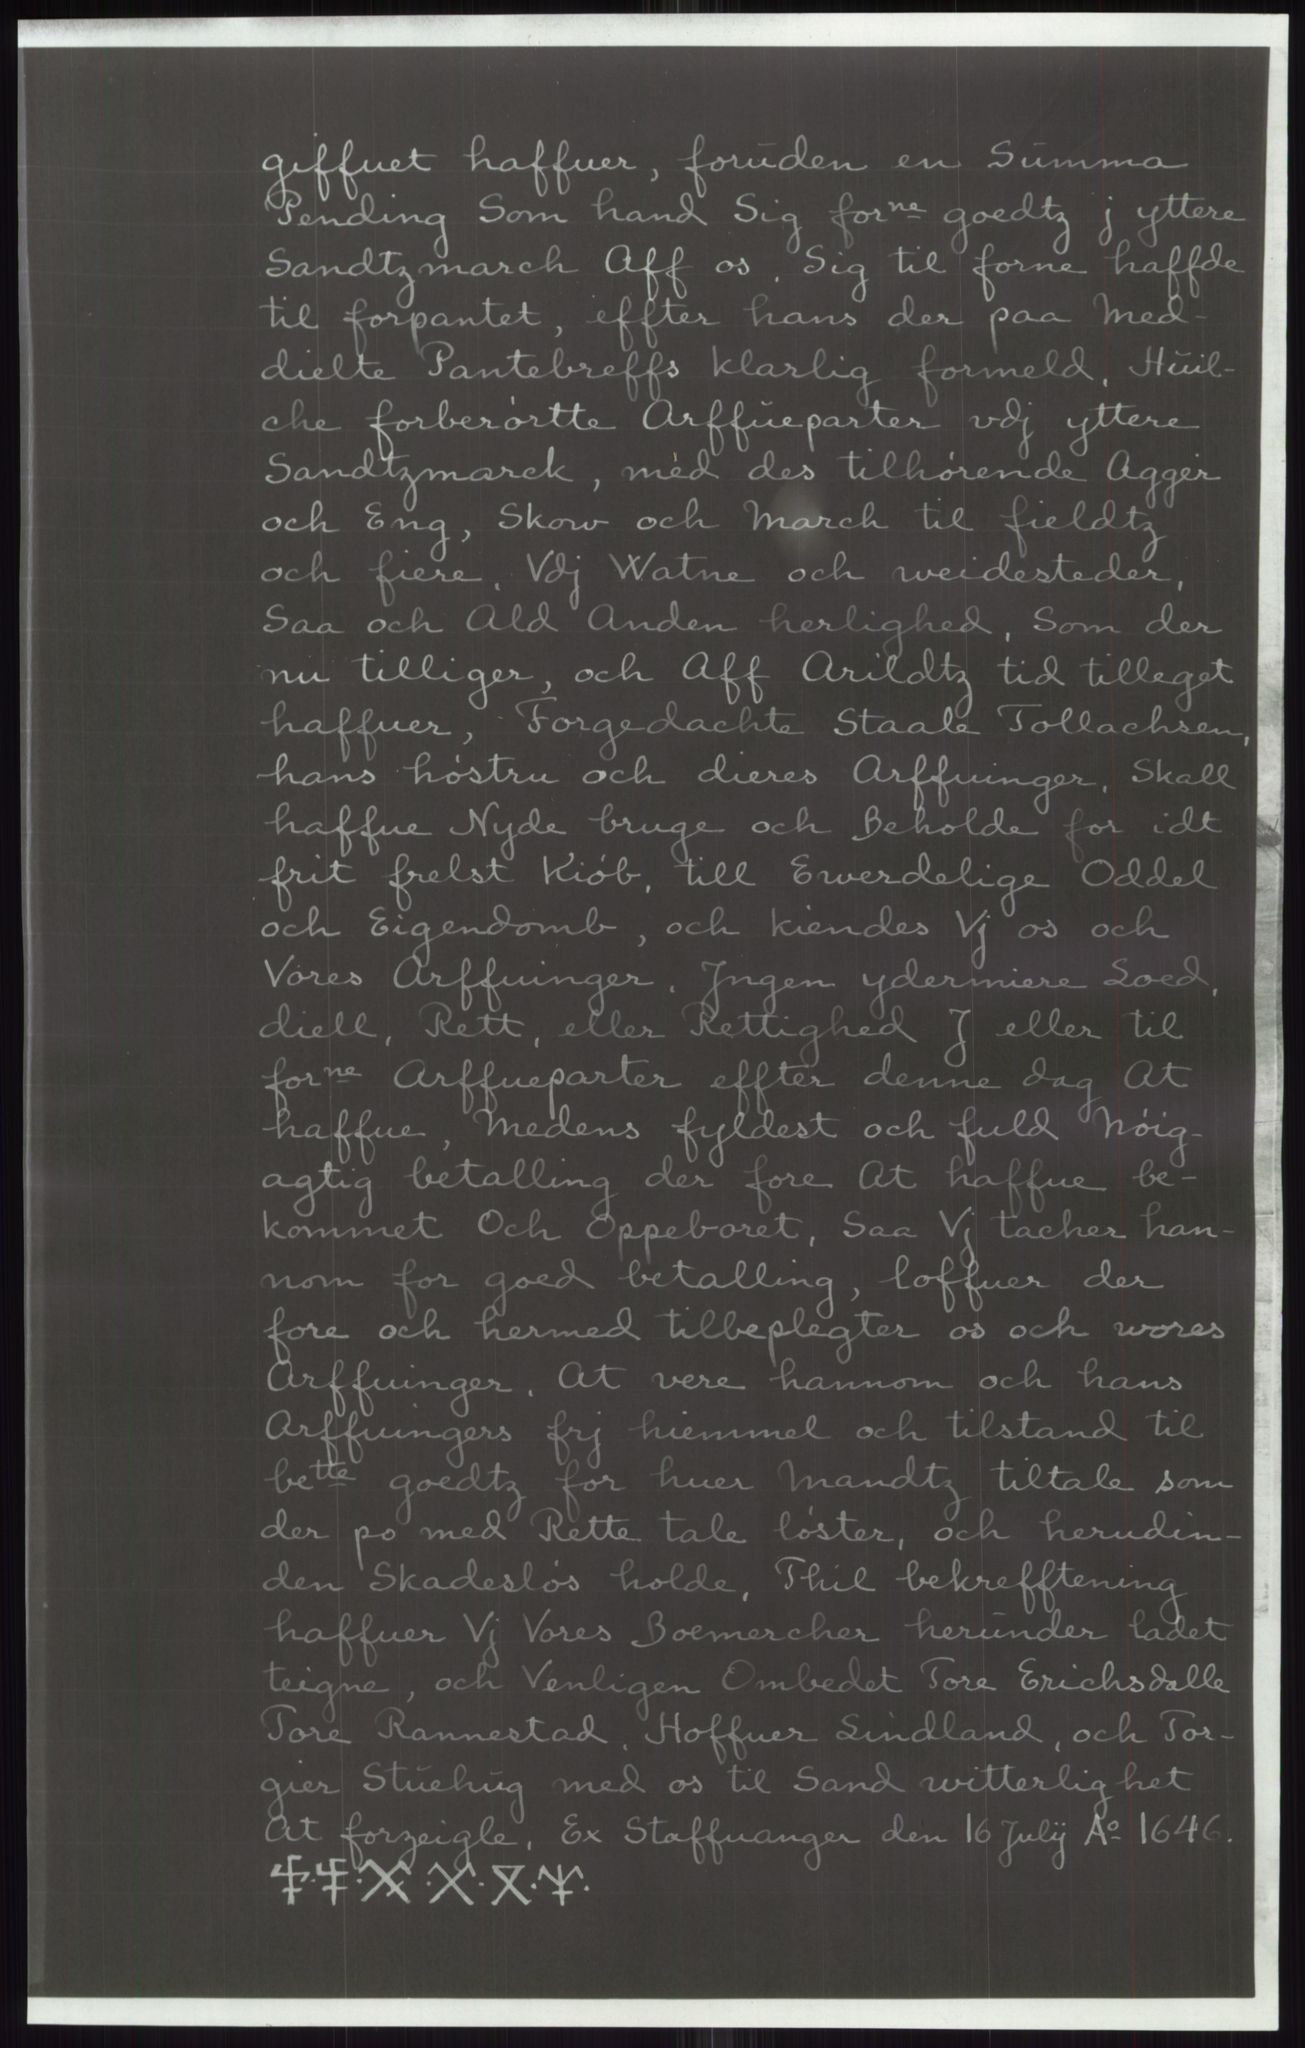 giffuet haffuer, forūden en Sūmma
Pending Som hand Sig forne goedtz j yttere
Sandtzmarch Aff os. Sig til forne haffde
til forpantet, effter hans der paa Med-
dielte Pantebreffs klarlig formeld. Hūil-
che forberórtte Arffūeparter vdj yttere
Sandtzmarck, med des tilhórende Agger
och Eng, Skow och March til fieldtz
och fiere. Vdj Watne och weidesteder,
Saa och Ald Anden herlighed, Som der
nu tilliger, och Aff Arildtz tid tilleget
haffuer, Forgedachte Staale Tollachsen,
hans hóstru och dieres Arffuinger. Skall
haffue Nyde bruge och Beholde for idt
frit frelst Kiób, till Ewerdelige Oddel
och Eigendomb, och kiendes Vj os och
Vores Arffuinger. Jngen ydermiere Loed,
diell, Rett, eller Rettighed J eller til
forne Arffueparter effter denne dag At
haffue, Medens fyldest och fuld Nóig-
agtig betalling der fore At haffue be-
kommet Och Oppeboret, Saa Vj tacher han-
nom for goed betalling, loffuer der
fore och hermed tilbeplegter os och wores
Arffuinger. At vere hannom och hans
Arffuingers frj hiemmel och tilstand til
bette goedtz for huer Mandtz tiltale som
der po med Rette tale lóster, och herudin-
den Skadeslós holde. Thil bekrefftening
haffuer Vj Vores Boemercher herūnder ladet
teigne, och Venligen Ombedet Tore Erichsdalle
Tore Rannestad, Hoffuer Lindland, och Tor-
gier Stūehūg med os til Sand witterlighet
At forzeigle. Ex Staffuanger den 16 Julij Ao 1646.